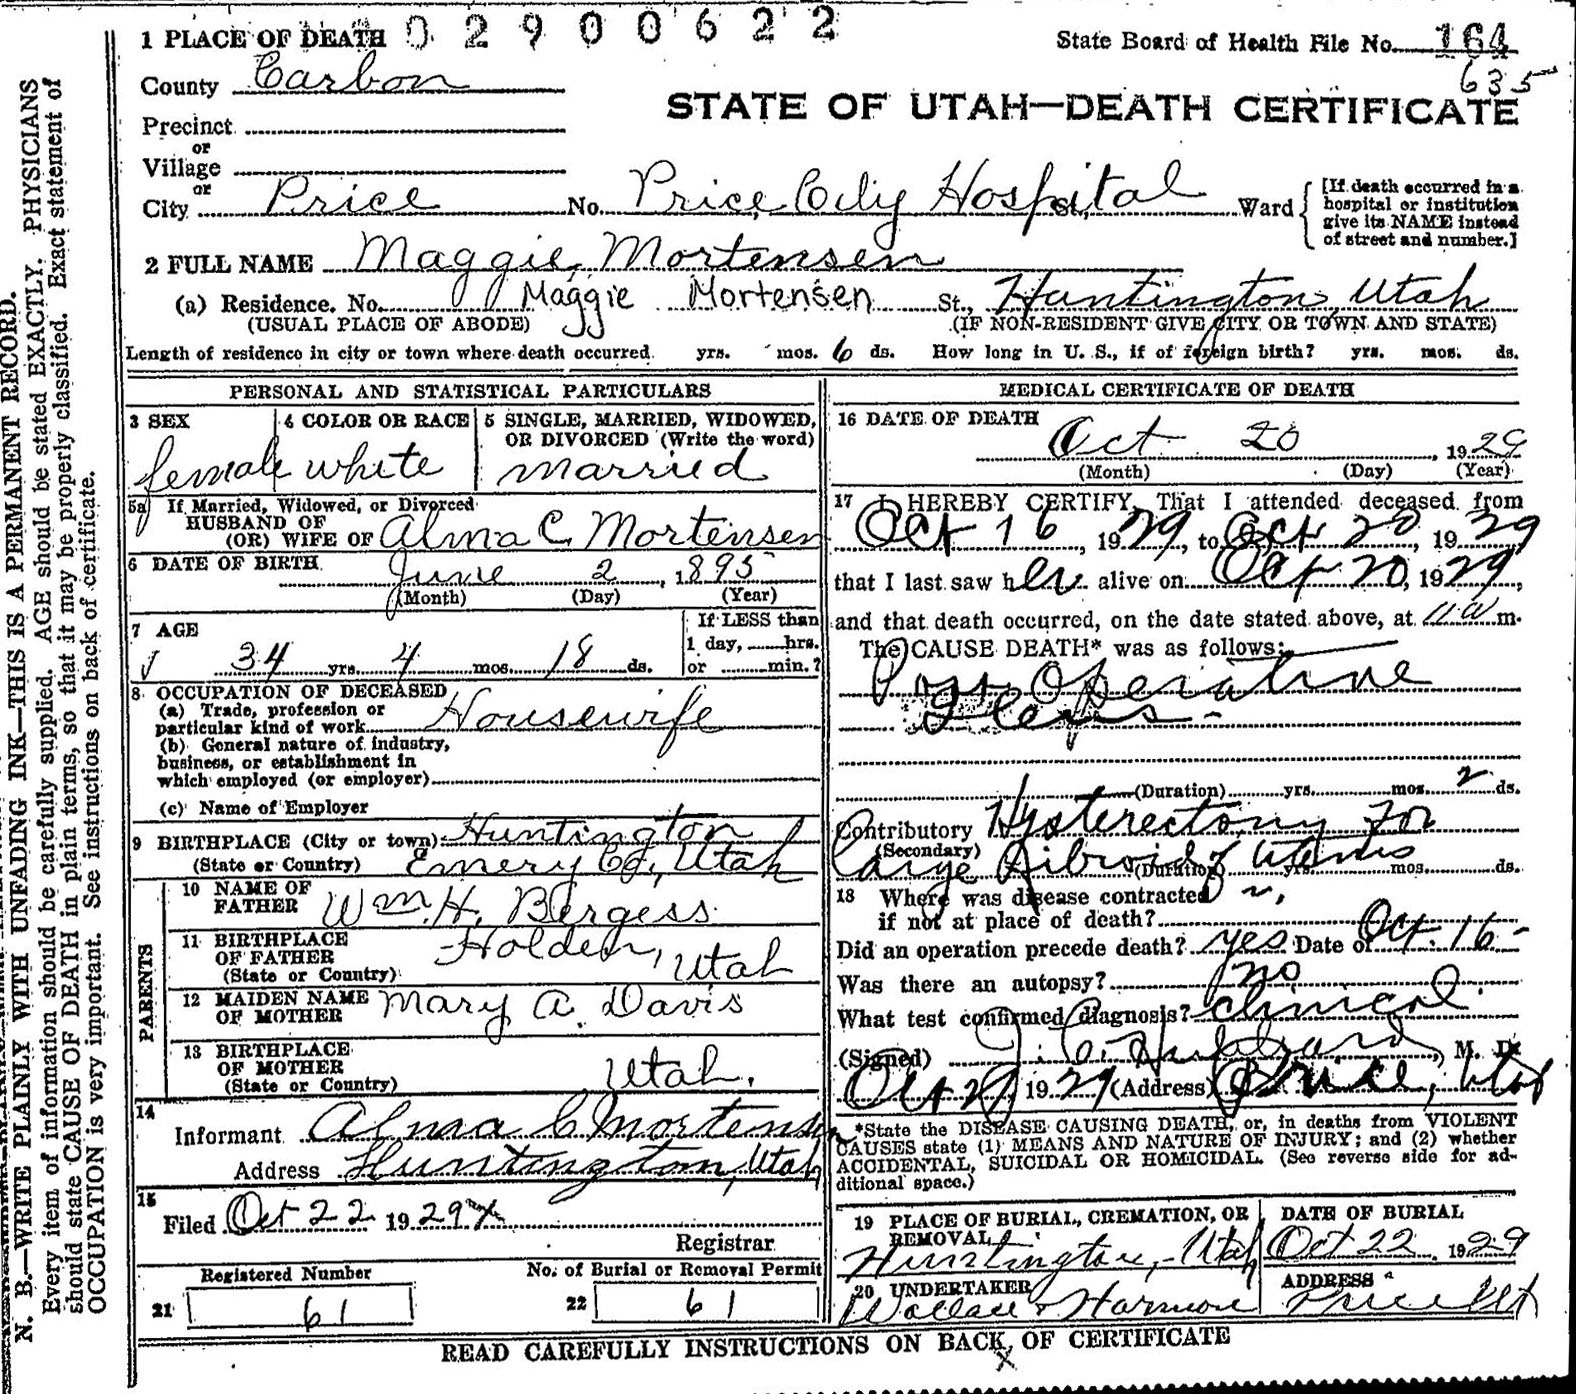 0 2 9 0 0 6 2 2
1 PLACE OF DEATH
State Board of Health File No. 164
635
County Carbon
STATE OF UTAH—DEATH CERTIFICATE
Precinct
or
Village
or
City Price No. Price City Hospital St., Ward
[If death occurred in a hospital or institution give its NAME instead of street and number.]
2 FULL NAME Maggie Mortensen
(a) Residence. No. Maggie Mortensen St., Huntington, Utah
(USUAL PLACE OF ABODE) (IF NON-RESIDENT GIVE CITY OR TOWN AND STATE)
Length of residence in city or town where death occurred yrs. mos. 6 ds. How long in U. S., if of foreign birth? yrs. mos. ds.
PERSONAL AND STATISTICAL PARTICULARS
3 SEX
female
4 COLOR OR RACE
white
5 SINGLE, MARRIED, WIDOWED,
OR DIVORCED (Write the word)
married
5a If Married, Widowed, or Divorced
HUSBAND OF
(OR) WIFE OF Alma C Mortensen
6 DATE OF BIRTH June 2, 1895
(Month) (Day) (Year)
7 AGE
34 yrs 4 mos 18 ds.
If LESS than
1 day, hrs.
or min.?
8 OCCUPATION OF DECEASED
(a) Trade, profession or
particular kind of work Housewife
(b) General nature of industry,
business, or establishment in
which employed (or employer)
(c) Name of Employer
9 BIRTHPLACE (City or town) Huntington
(State or Country) Emery Co., Utah
PARENTS
10 NAME OF
FATHER Wm. H. Bergess
11 BIRTHPLACE
OF FATHER Holden, Utah
(State or Country)
12 MAIDEN NAME
OF MOTHER Mary A. Davis
13 BIRTHPLACE
OF MOTHER
(State or Country) Utah.
14
Informant Alma C Mortensen
Address Huntington, Utah
15
Filed Oct 22 1929 x
Registrar
Registered Number
21 61
No. of Burial or Removal Permit
22 61
MEDICAL CERTIFICATE OF DEATH
16 DATE OF DEATH
Oct 20, 1929
(Month) (Day) (Year)
17 I HEREBY CERTIFY, That I attended deceased from
Oct 16, 1929, to Oct 20, 1929
that I last saw her alive on Oct 20, 1929,
and that death occurred, on the date stated above, at 11 a m.
The CAUSE DEATH* was as follows:
Post Operative
Ileus -
(Duration) yrs. mos. 2 ds.
Contributory Hysterectomy For
(Secondary)
Large Fibroid of Uterus
(Duration) yrs. mos. ds.
18 Where was disease contracted
if not at place of death?
Did an operation precede death? yes Date of Oct. 16 -
Was there an autopsy? no
What test confirmed diagnosis? clinical.
(Signed) J. C. Hubbard, M. D.
1929 (Address) Price, Utah
*State the DISEASE CAUSING DEATH, or, in deaths from VIOLENT
CAUSES state (1) MEANS AND NATURE OF INJURY; and (2) whether
ACCIDENTAL, SUICIDAL OR HOMICIDAL. (See reverse side for ad-
ditional space.)
19 PLACE OF BURIAL, CREMATION, OR
REMOVAL
Huntington, Utah
DATE OF BURIAL
Oct 22, 1929
20 UNDERTAKER
Wallace & Harmon
ADDRESS
Price Ut
READ CAREFULLY INSTRUCTIONS ON BACK OF CERTIFICATE
x
N. B.—WRITE PLAINLY WITH UNFADING INK—THIS IS A PERMANENT RECORD.
Every item of information should be carefully supplied. AGE should be stated EXACTLY. PHYSICIANS
should state CAUSE OF DEATH in plain terms, so that it may be properly classified. Exact statement of
OCCUPATION is very important. See instructions on back of certificate.